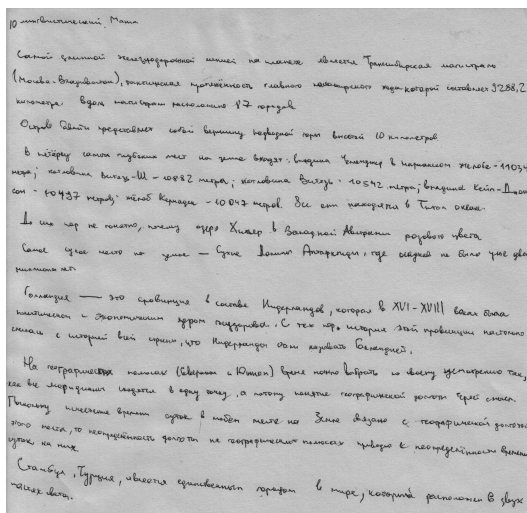 10 лингвистический. Маша
Самой длинной железнодорожной линией на планете является Транссибирская магистраль
(Москва-Владивосток), фактическая протяжённость главного пассажирского хода которой составляет 9288,2
километра. Вдоль магистрали расположено 87 городов
Остров Гавайи представляет собой вершину подводной горы высотой 10 километров
В пятёрку самых глубоких мест на земле входят: впадина Челленджер в Марианском желобе - 11034
метра; котловина Витязь-III - 10882 метра; котловина Витязь - 10542 метра; впадина Кейп-Джон
сон - 10497 метров; жёлоб Кермадек - 10047 метров. Все они находятся в Тихом океане.
До сих пор не понятно, почему озеро Хиллер в Западной Австралии розового цвета
Самое сухое место на земле — Сухие Долины Антарктиды, где осадков не было уже два
миллиона лет.
Голландия — это провинция в составе Нидерландов, которая в XVI - XVIII веках была
политическим и экономическим ядром государства. С тех пор история этой провинции настолько
слилась с историей всей страны, что Нидерланды стали называть Голландией.
На географических полюсах (Северном и Южном) время можно выбрать по своему усмотрению, так
как все меридианы сходятся в одну точку, а потому понятие географической долготы теряет смысл.
Поскольку исчисление времени суток в любом месте на Земле связано с географической долготой
этого места, то неопределённость долготы на географических полюсах приводит к неопределённости времени
суток на них.
Стамбул, Турция, является единственным городом в мире, который расположен в двух
частях света.